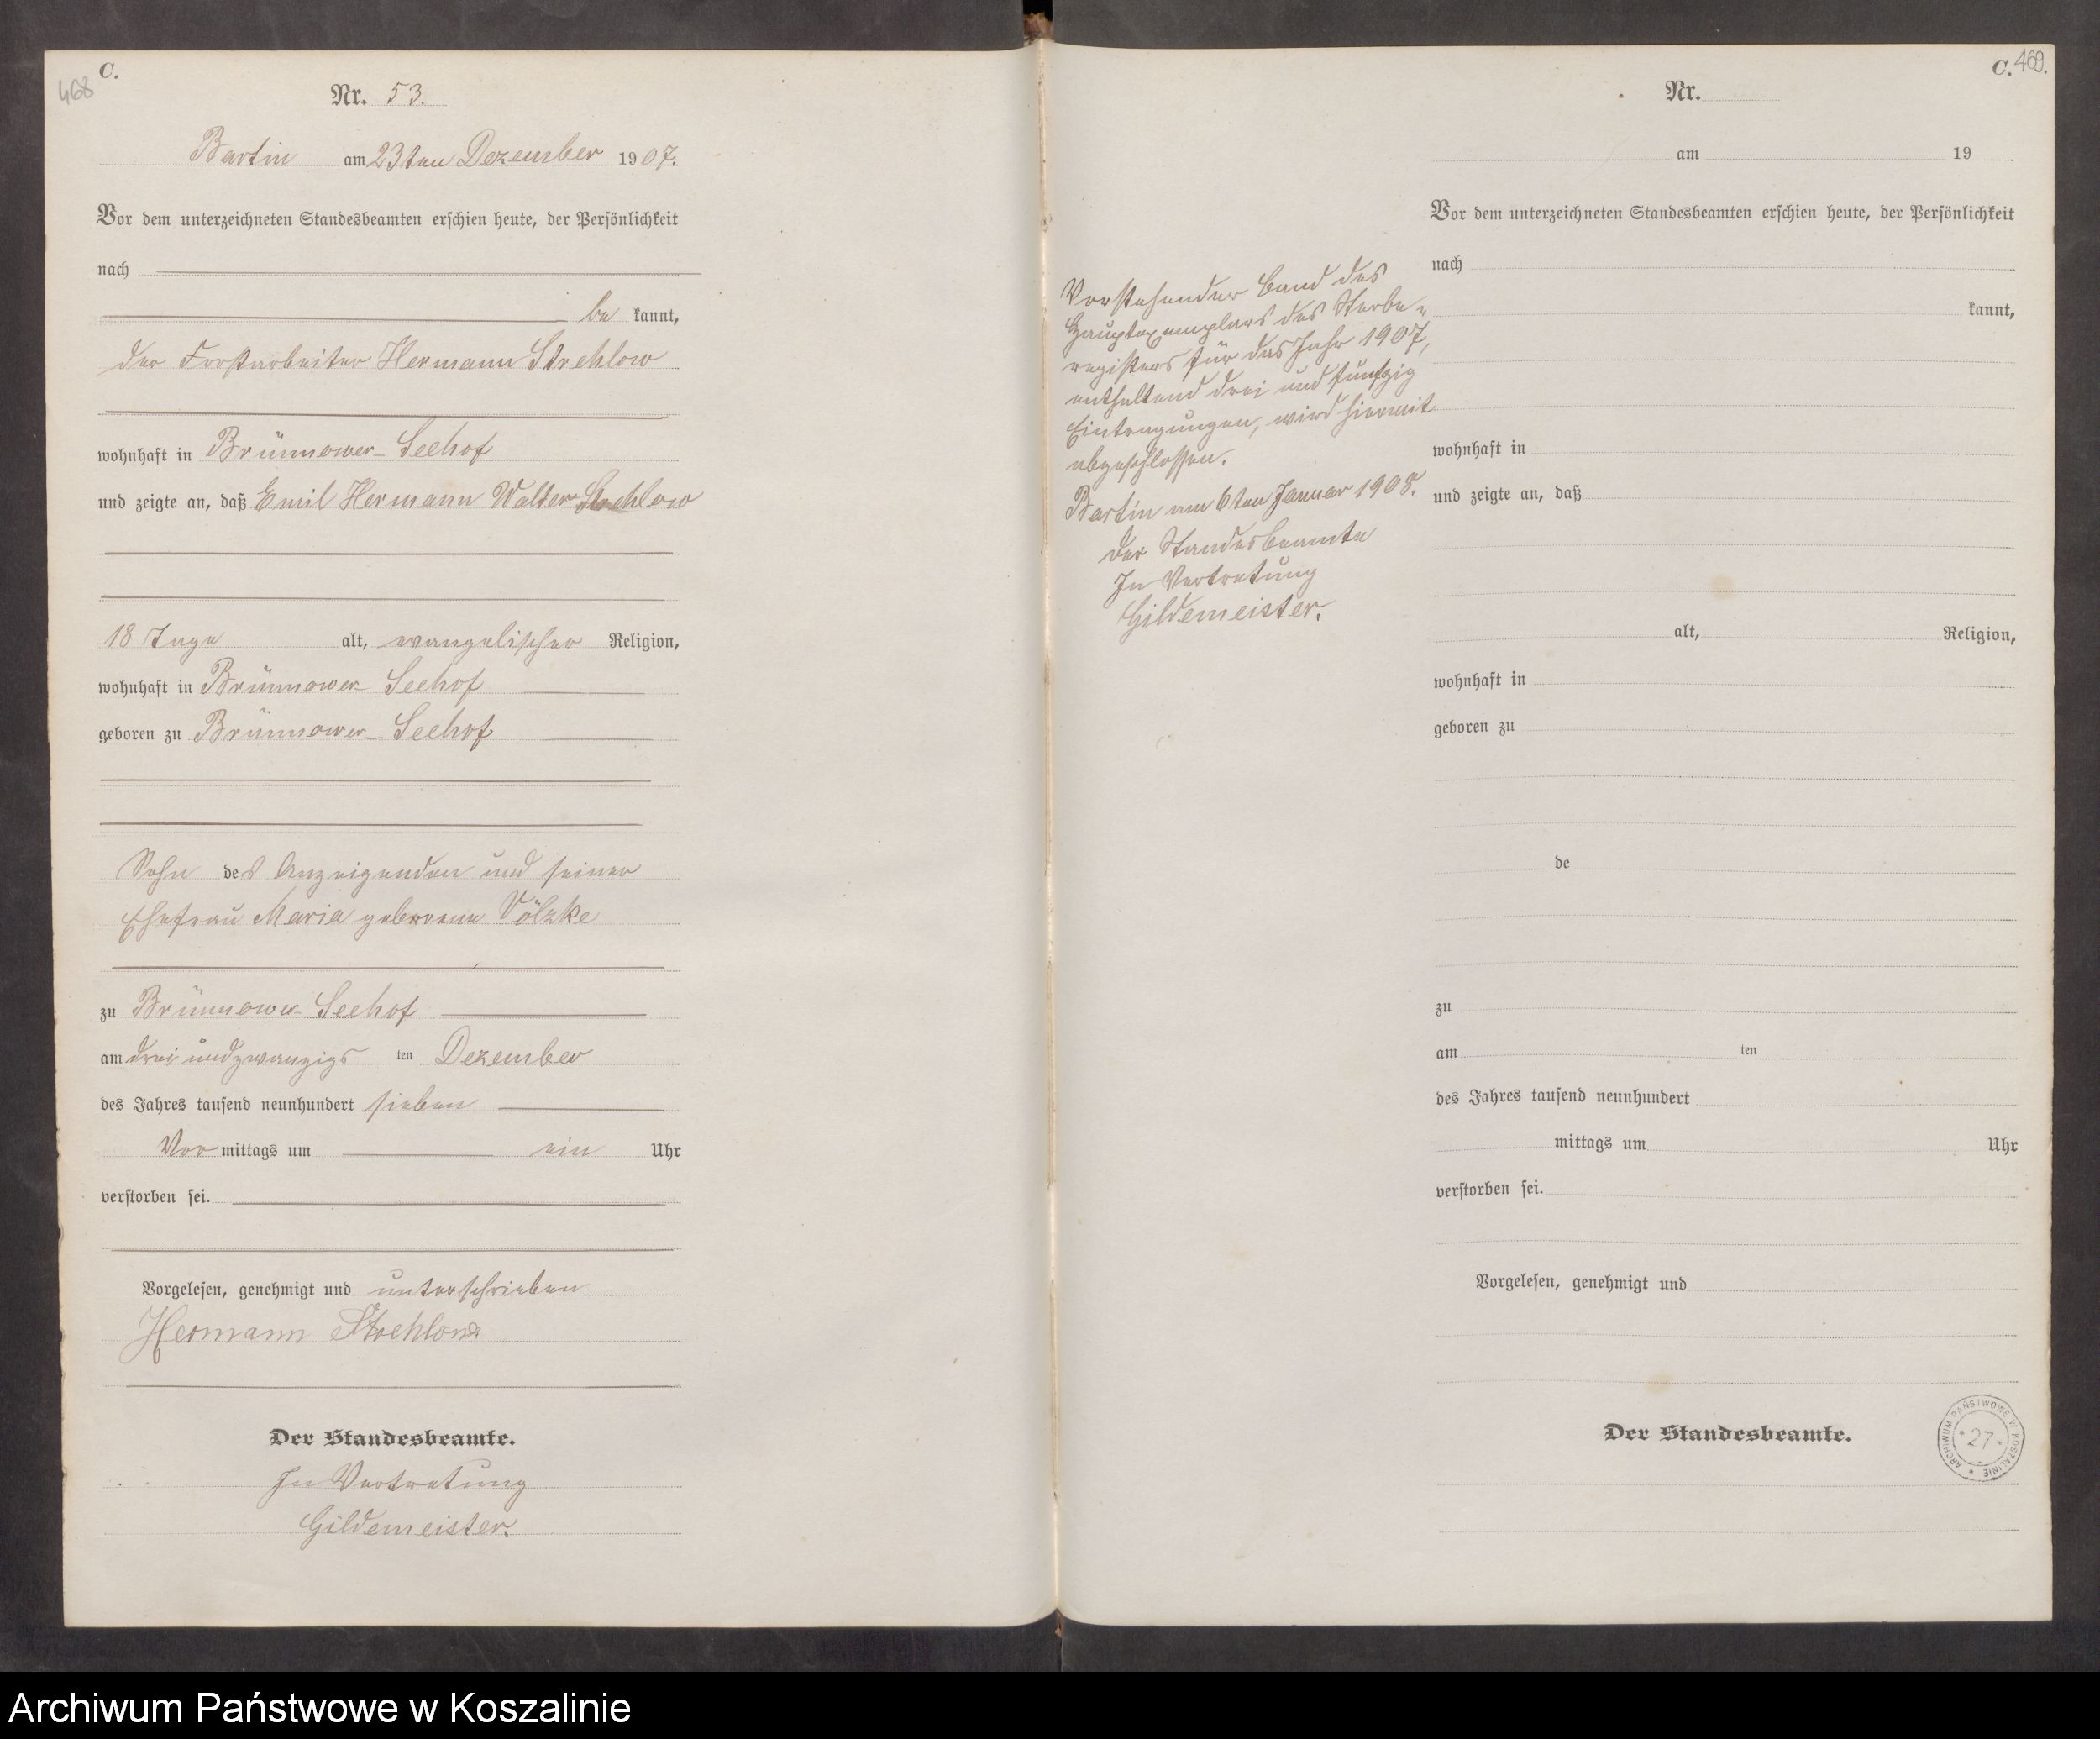 468
C.
Nr. 53.
Bartin am 23ten Dezember 1907.
Vor dem unterzeichneten Standesbeamten erschien heute, der Persönlichkeit
nach
be kannt,
der Forstarbeiter Hermann Strehlow
wohnhaft in Brünnower Seehof
und zeigte an, daß Emil Hermann Walter Strehlow
18 Tage alt, evangelischer Religion,
wohnhaft in Brünnower Seehof
geboren zu Brünnower Seehof
Sohn des Anzeigenden und seiner
Ehefrau Maria geborene Völzke
zu Brünnower Seehof
am drei und zwanzigs ten Dezember
des Jahres tausend neunhundert sieben
Vor mittags um ein Uhr
verstorben sei.
Vorgelesen, genehmigt und unterschrieben
Hermann Strehlow
Der Standesbeamte.
In Vertretung
Gildemeister.
C. 469.
Nr.
am 19
Vor dem unterzeichneten Standesbeamten erschien heute, der Persönlichkeit
nach
kannt,
wohnhaft in
und zeigte an, daß
alt, Religion,
wohnhaft in
geboren zu
de
zu
am ten
des Jahres tausend neunhundert
mittags um Uhr
verstorben sei.
Vorgelesen, genehmigt und
Der Standesbeamte.
Vorstehender Band des
Hauptexemplars des Sterbe-
registers für das Jahr 1907,
enthaltend drei und fünfzig
Eintragungen, wird hiermit
abgeschlossen.
Bartin am 6ten Januar 1908.
Der Standesbeamte
In Vertretung
Gildemeister.
ARCHIWUM PAŃSTWOWE W KOSZALINIE
27
Archiwum Państwowe w Koszalinie